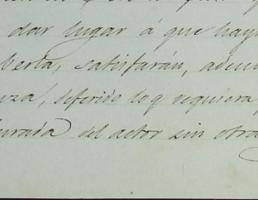 dar lugar á que hay
berta, satisfarán, adem
nza, deferido lo q requiera
urada del actor sin otra